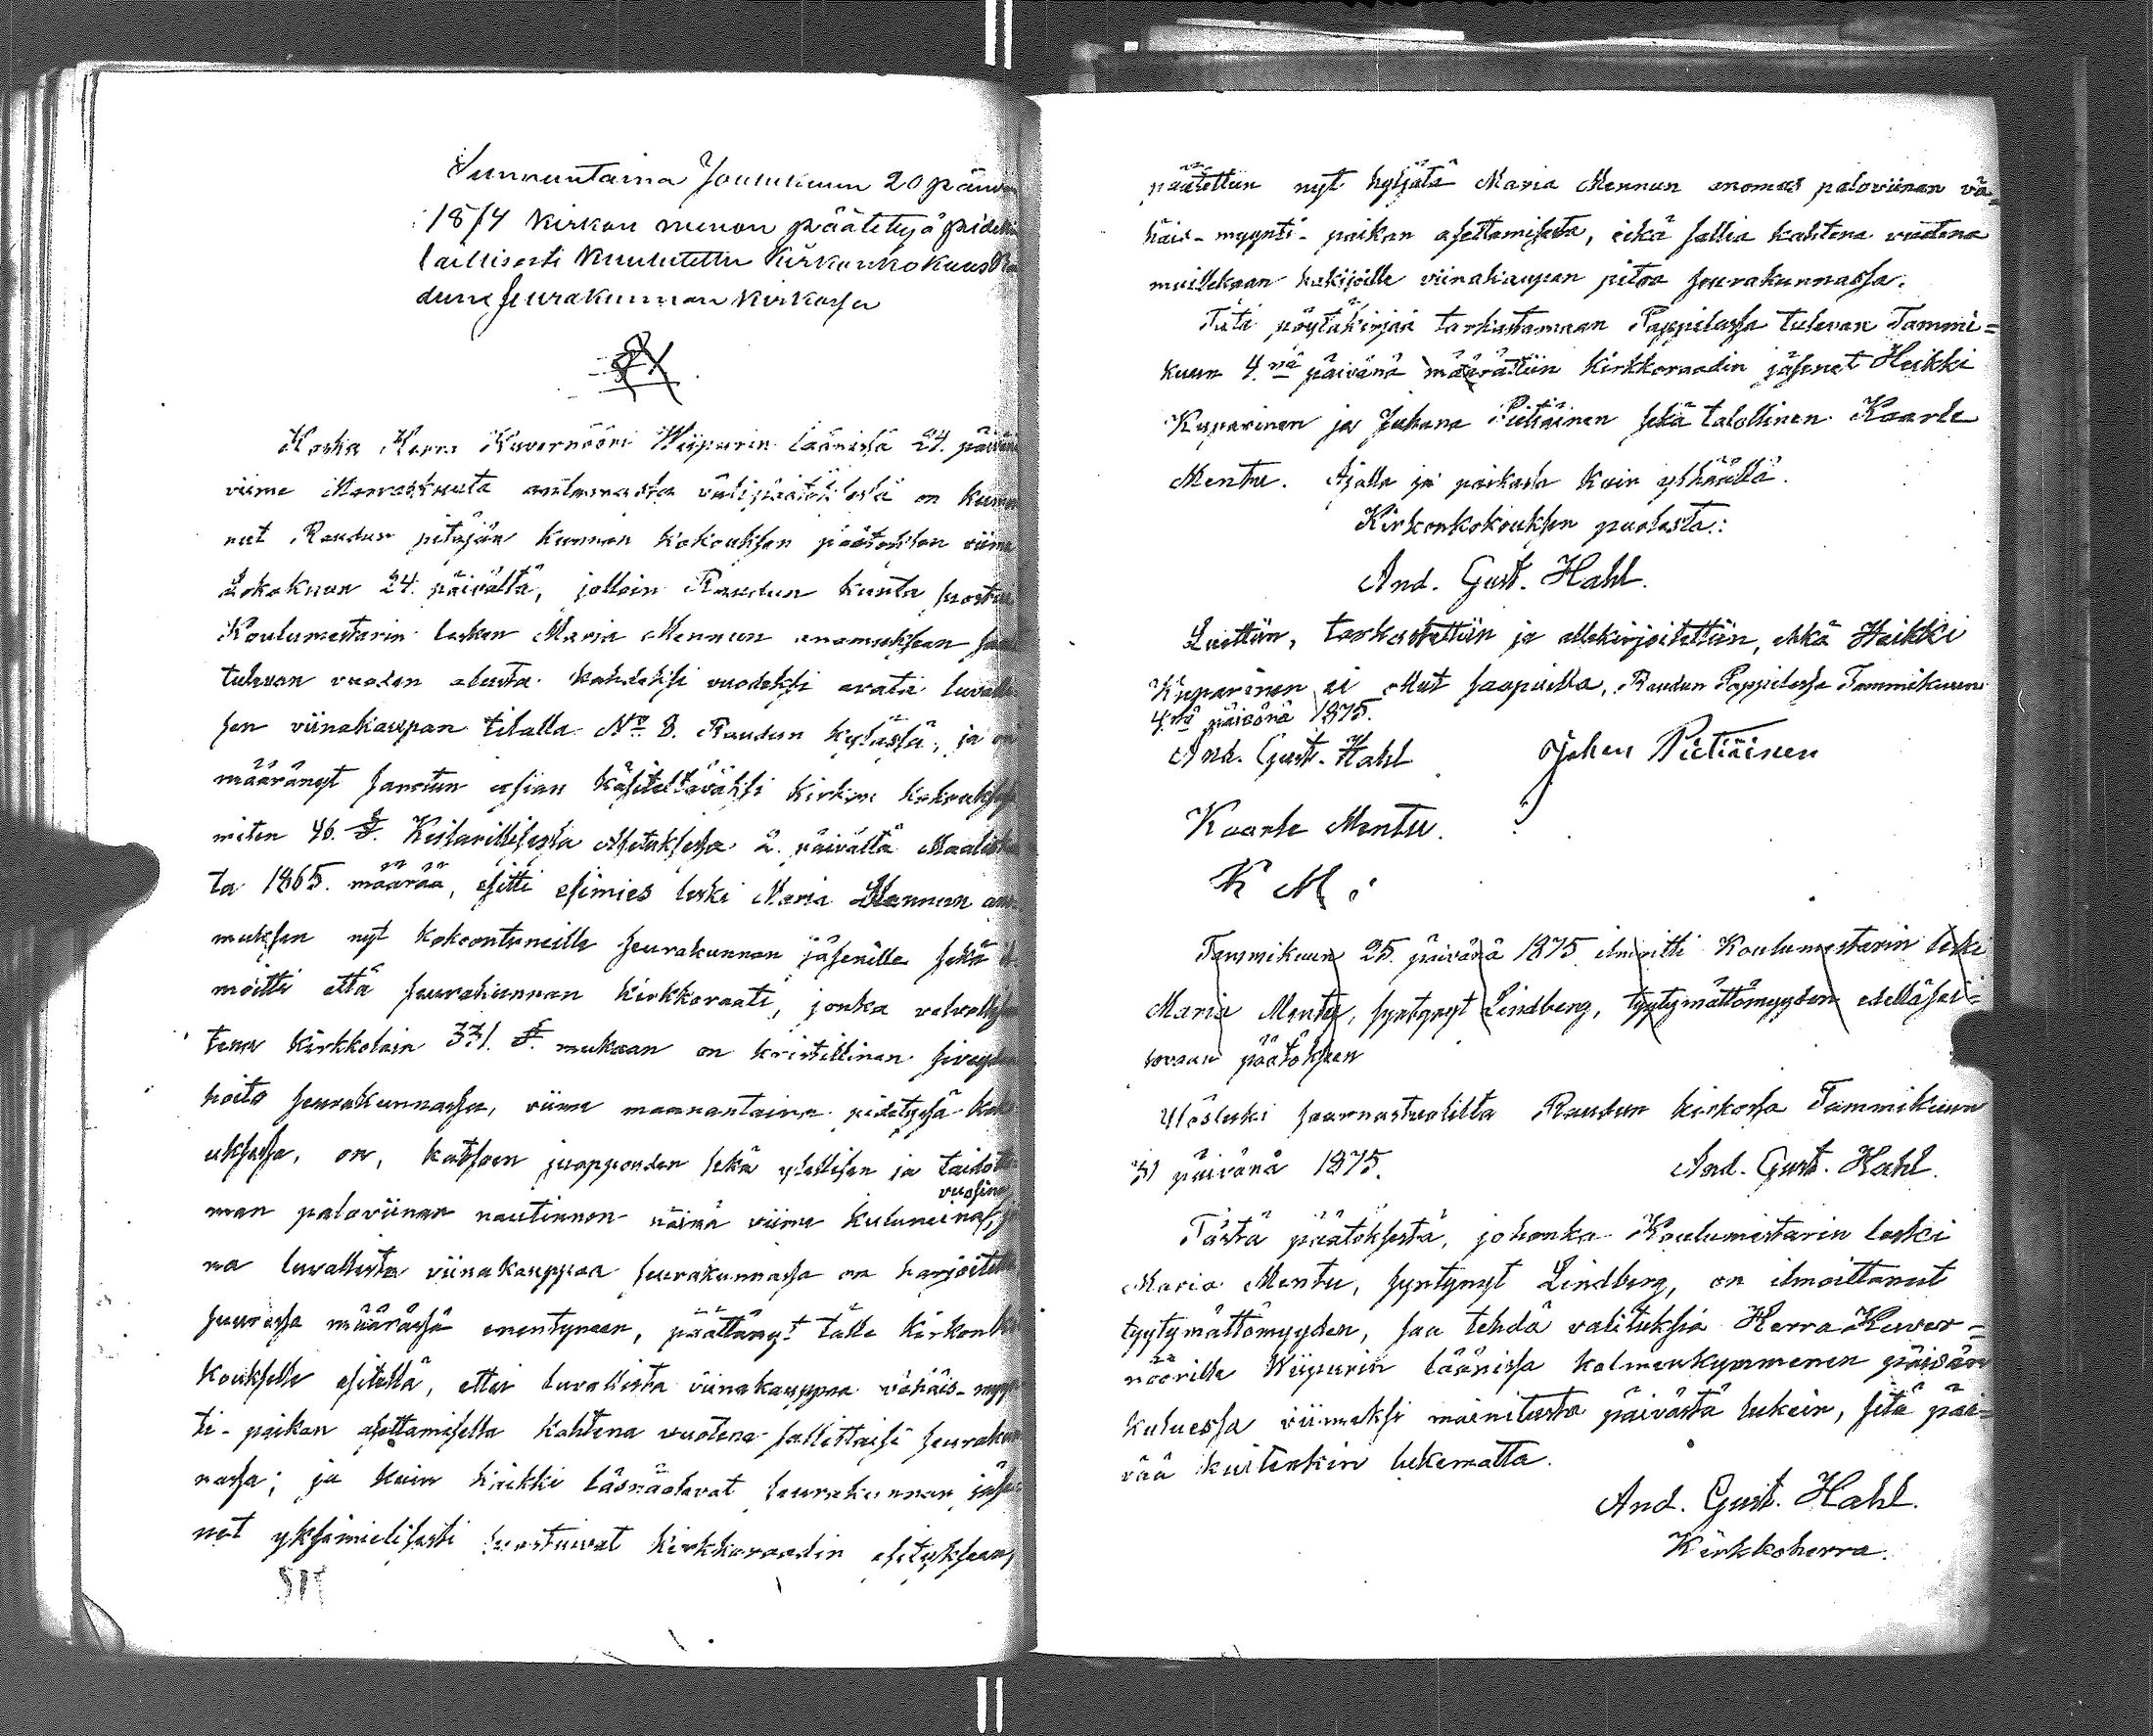 Sunnuntaina Joulukuun 20 päivän
1874 Kirkon menon päätettyä pidettin
laillisesti kuulutettu Kirkonkokous Rau
dun seurakunnan kirkossa
§ 1.
Koska Herra Kuvernööri Wiipurin läänissä 24. päivänä
viime Marraskuuta antamassa välipäätöksessä on kumon
nut Raudun pitäjän kunnan kokouksen päätöksen viime
Lokakuun 24. päivältä, jolloin Raudun kunta suostui
Koulumestarin lesken Maria Mennun anomukseen saada
tulevan vuoden alusta kahdeksi vuodeksi avata luvalli
sen viinakaupan tilalla No 8. Raudun kylässä, ja on
määrännyt sanotun asian käsiteltäväksi kirkon kokouksessa
miten 46. §. Keisarillisessa Asetuksessa 2. päivältä Maalisku
ta 1865. määrää, esitti esimies leski Maria Mennun ano
muksen nyt kokoontuneille seurakunnan jäsenille sekä il
moitti että seurakunnan kirkkoraati, jonka velvollisuu
tena kirkkolain 331. §. mukaan on kristillinen siveyden
hoito seurakunnassa, viime maanantaina pidetyssä kok
uksessa, on, katsoen juoppouden sekä ylellisen ja taidotto
man paloviinan nautinnon näinä viime kuluneina vuosina,
na luvallista viinakauppaa seurakunnassa on harjoitettu
suuressa määrässä enentyneen, päättänyt tälle kirkonko
koukselle esitellä, ettei luvallista viinakauppaa vähäis-myyn
ti-paikan asettamisella kahtena vuotena sallittaisi seurakun
nassa; ja kuin kaikki läsnäolevat seurakunnan jäse
net yksimielisesti suostuivat kirkkoraadin esitykseen,
päätettiin nyt hyljätä Maria Mennun anomus paloviinan vä
häis-myynti-paikan asettamisesta, eikä sallia kahtena vuotena
muillekaan hakijoille viinakaupan pitoa seurakunnassa.
Tätä pöytäkirjaa tarkastamaan Pappilassa tulevan Tammi=
kuun 4.nä päivänä määrättiin kirkkoraadin jäsenet Heikki
Kuparinen ja Juhana Pietiäinen sekä talollinen Kaarle
Mentu. Ajalla ja paikalla kuin ylhäällä.
Kirkonkokouksen puolesta:
And. Gust. Hahl.
Luettiin, tarkastettiin ja allekirjoitettiin, ehkä Heikki
Kuparinen ei ollut saapuilla, Raudun Pappilassa Tammikuun
4.nä päivänä 1875.
And. Gust. Hahl Johan Pietiäinen
Kaarle Mentu.
K M.
Tammikuun 25. päivänä 1875 ilmoitti Koulumestarin leski
Maria Mentu, syntynyt Lindberg, tyytymättömyyden edelläsei=
sovaan päätökseen
Ulosluki saarnastuolilta Raudun kirkossa Tammikuun
31 päivänä 1875. And. Gust. Hahl.
Tästä päätöksestä, johonka Koulumestarin leski
Maria Mentu, syntynyt Lindberg, on ilmoittanut
tyytymättömyyden, saa tehdä valituksia Herra Kuver=
nöörille Wiipurin läänissä kolmenkymmenen päivän
kuluessa viimeksi mainitusta päivästä lukein, sitä päi=
vää kuitenkin lukematta.
And. Gust. Hahl.
Kirkkoherra.